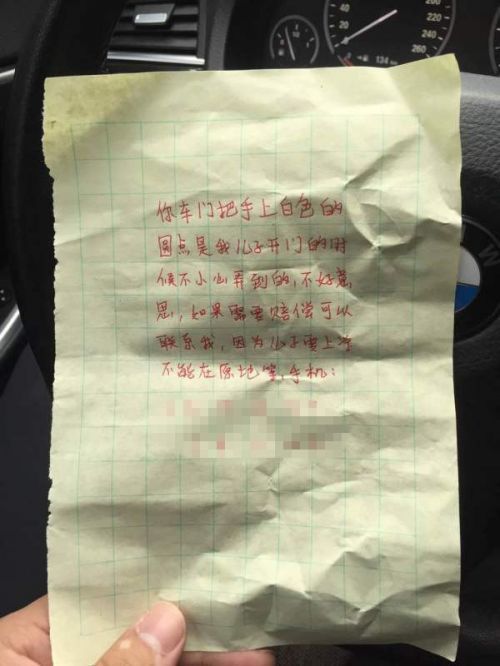 40
20
220
240
260
134
你车门把手上白色的
圆点是我儿子开门的时
候不小心弄到的，不好意
思，如果需要赔偿可以
联系我，因为儿子要上学
不能在原地等，手机：